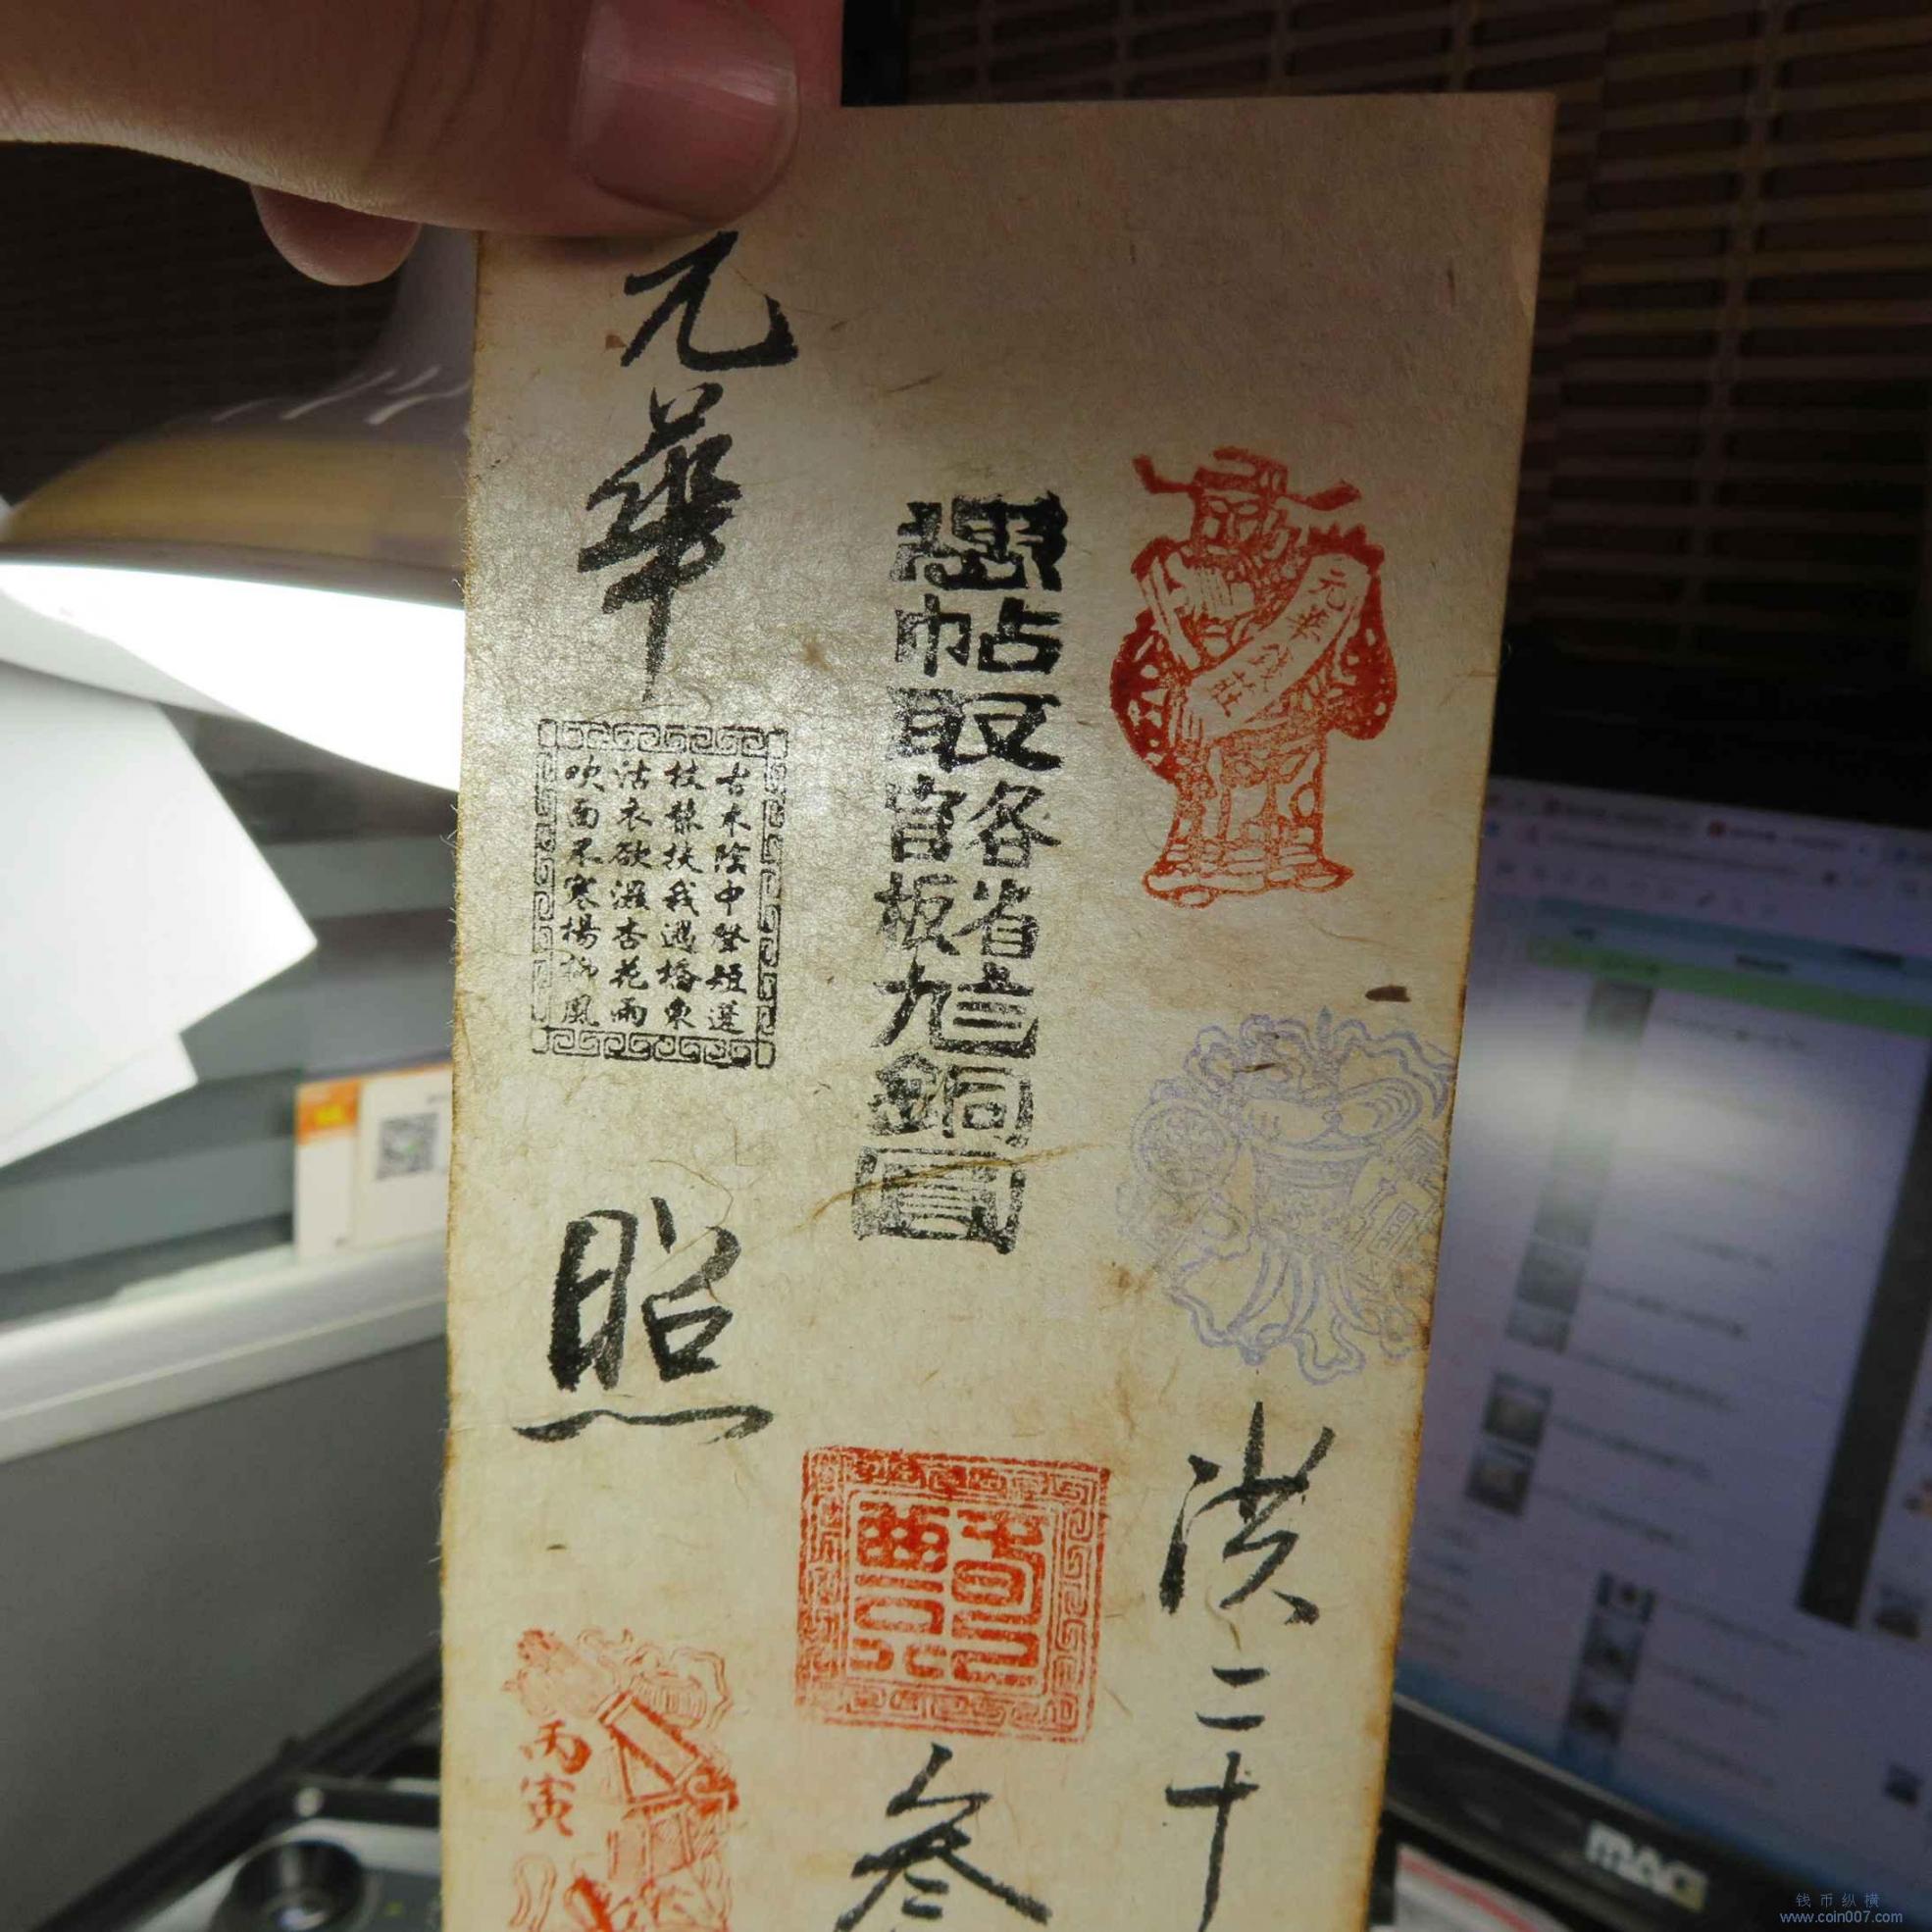 洪二十
憑帖取各省官板九鈭銅圓
叁
元華
古木陰中繫短篷
杖藜扶我過橋東
沾衣欲濕杏花雨
吹面不寒楊柳風
照
元華錢莊
丙寅
MAG
钱币纵横
www.coin007.com